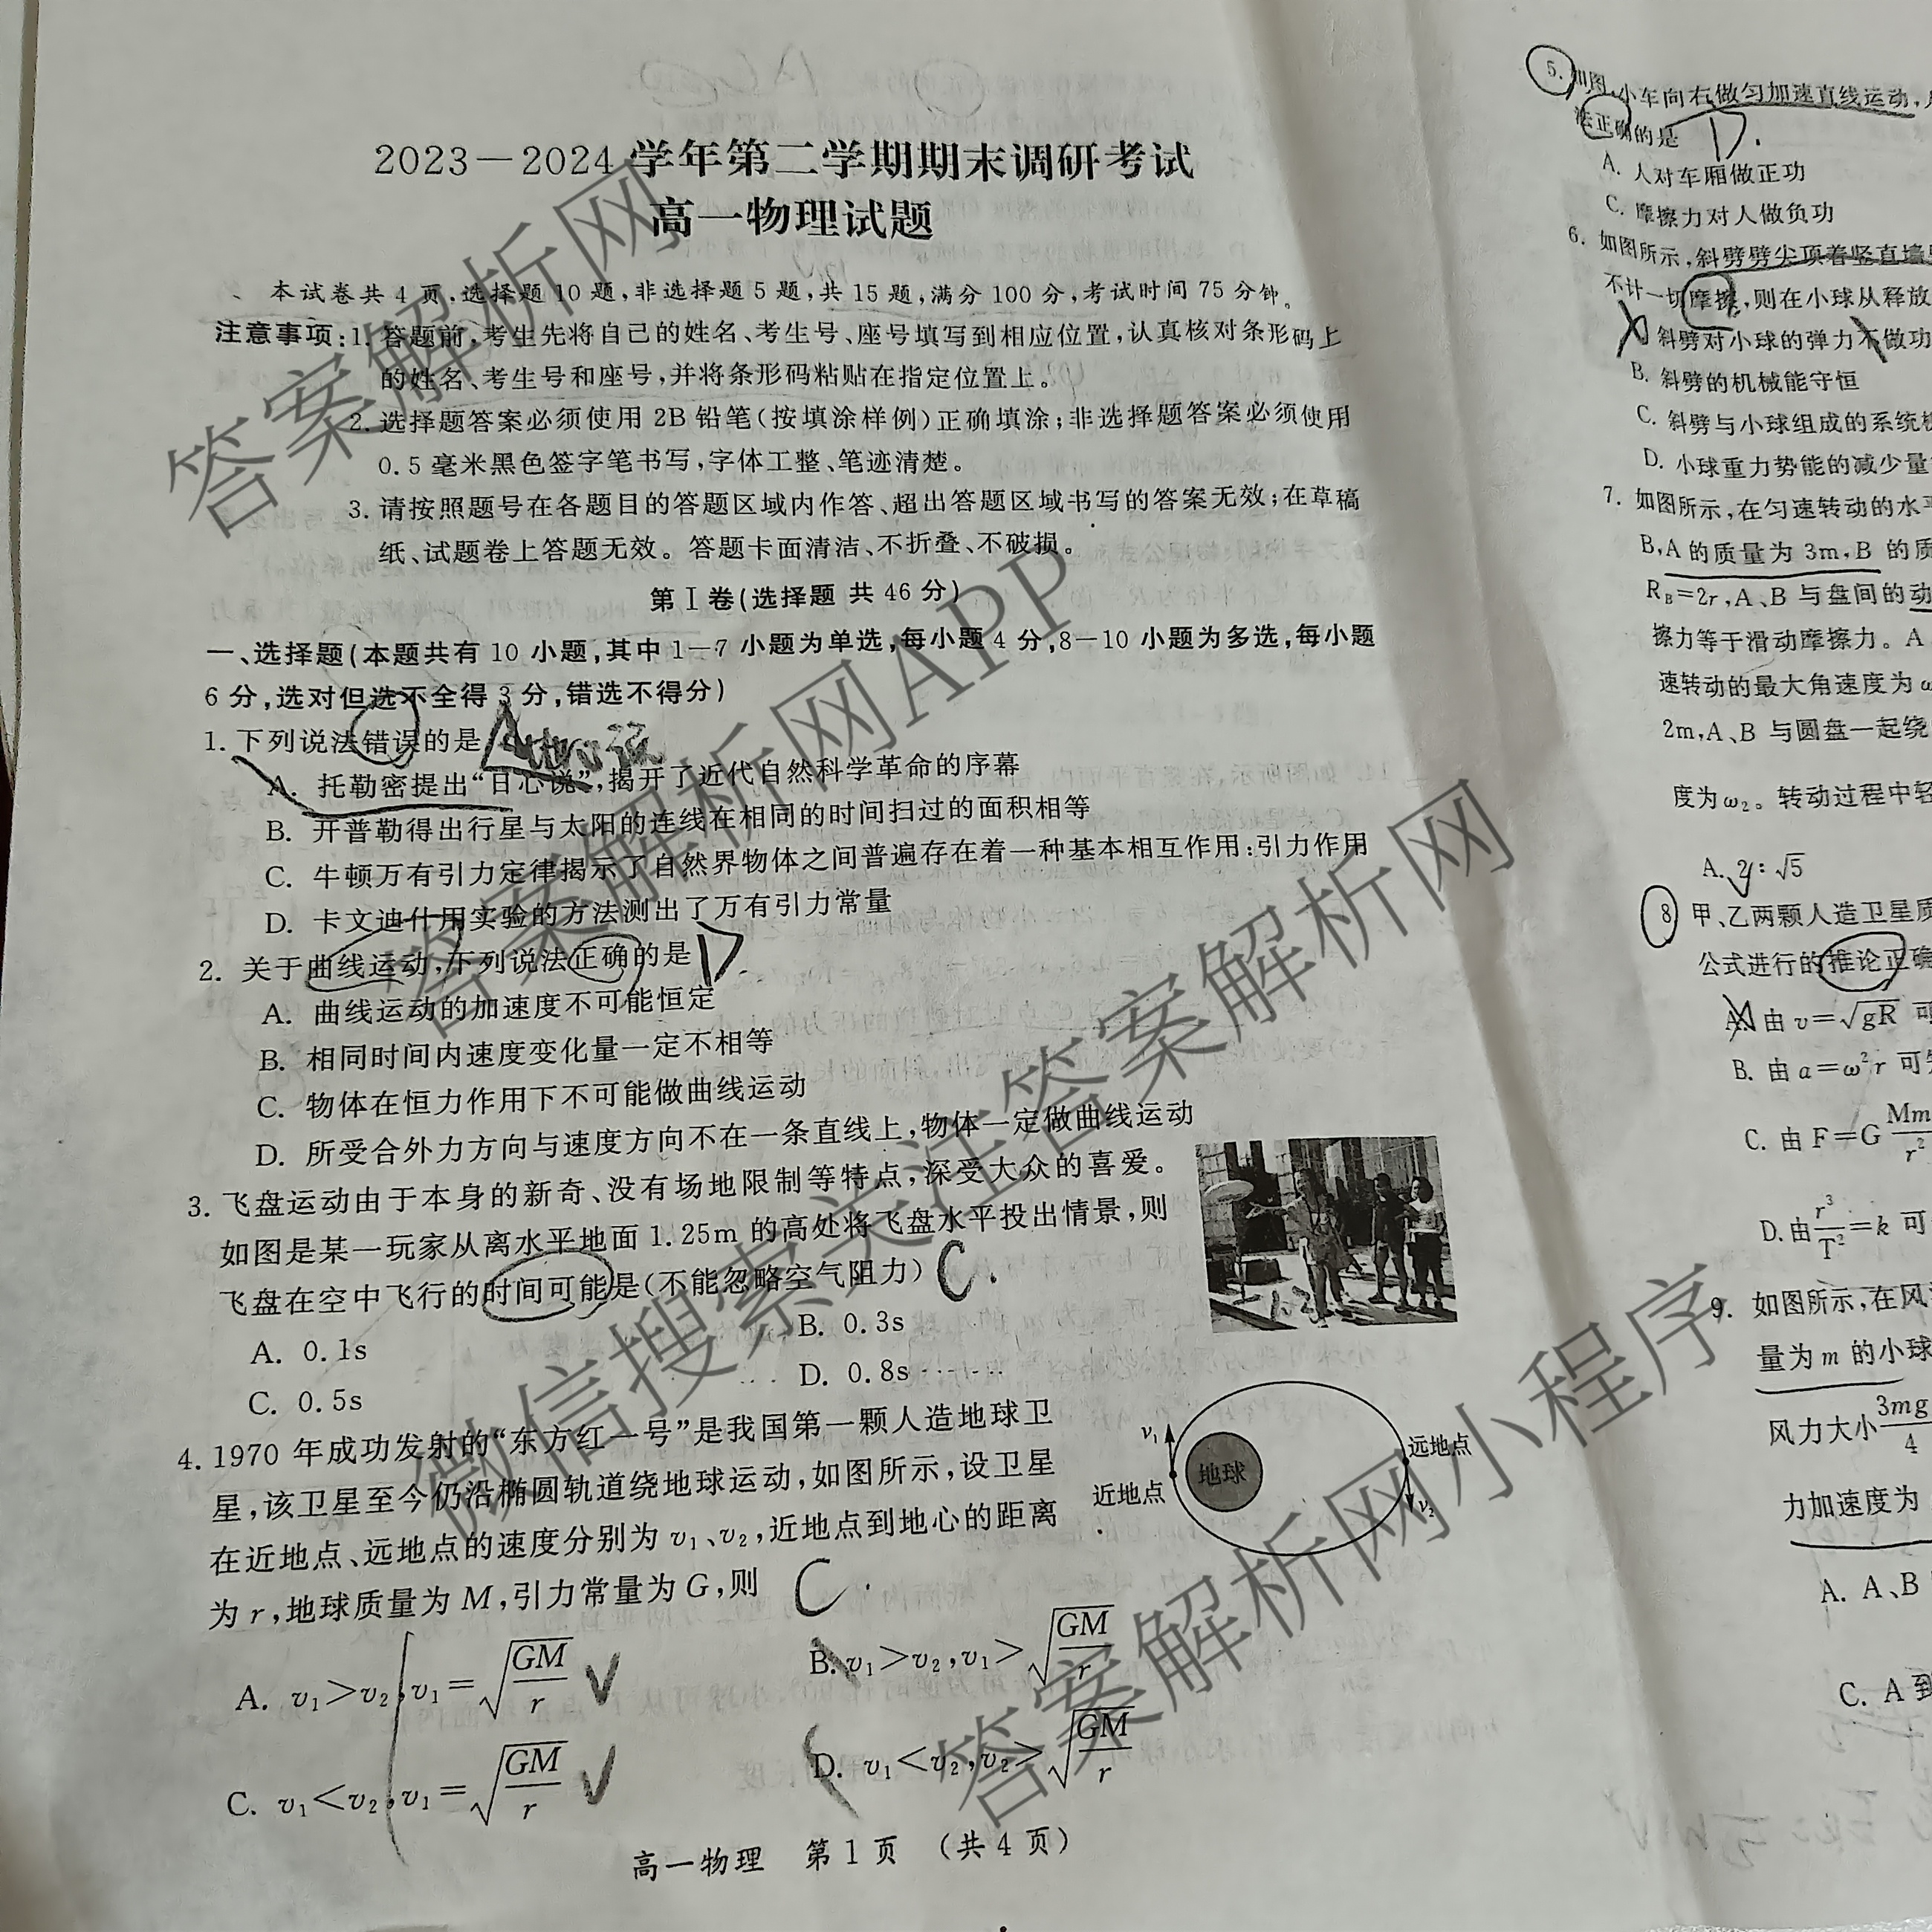 2023－2024学年第二学期期末调研考试
高一物理试题
本试卷共4页,选择题10题,非选择题5题,共15题,满分100分,考试时间75分钟。
注意事项:1.答题前,考生先将自己的姓名、考生号、座号填写到相应位置,认真核对条形码上
的姓名、考生号和座号,并将条形码粘贴在指定位置上。
2.选择题答案必须使用2B铅笔(按填涂样例)正确填涂;非选择题答案必须使用
0.5毫米黑色签字笔书写,字体工整、笔迹清楚。
3.请按照题号在各题目的答题区域内作答、超出答题区域书写的答案无效;在草稿
纸、试题卷上答题无效。答题卡面清洁、不折叠、不破损。
第Ⅰ卷(选择题 共46分)
一、选择题(本题共有10小题,其中1－7小题为单选,每小题4分,8－10小题为多选,每小题
6分,选对但选不全得3分,错选不得分)
1.下列说法错误的是
A. 托勒密提出“日心说”,揭开了近代自然科学革命的序幕
B. 开普勒得出行星与太阳的连线在相同的时间扫过的面积相等
C. 牛顿万有引力定律揭示了自然界物体之间普遍存在着一种基本相互作用:引力作用
D. 卡文迪什用实验的方法测出了万有引力常量
2. 关于曲线运动,下列说法正确的是 D
A. 曲线运动的加速度不可能恒定
B. 相同时间内速度变化量一定不相等
C. 物体在恒力作用下不可能做曲线运动
D. 所受合外力方向与速度方向不在一条直线上,物体一定做曲线运动
3. 飞盘运动由于本身的新奇、没有场地限制等特点,深受大众的喜爱。
如图是某一玩家从离水平地面1.25m的高处将飞盘水平投出情景,则
飞盘在空中飞行的时间可能是(不能忽略空气阻力) C.
A. 0.1s B. 0.3s
C. 0.5s D. 0.8s
4. 1970年成功发射的“东方红一号”是我国第一颗人造地球卫
星,该卫星至今仍沿椭圆轨道绕地球运动,如图所示,设卫星
在近地点、远地点的速度分别为v₁、v₂,近地点到地心的距离
为r,地球质量为M,引力常量为G,则 C.
v₁ 近地点 地球 远地点 v₂
A. v₁>v₂,v₁=√(GM/r) ✓ B. v₁>v₂,v₁>√(GM/r)
C. v₁<v₂,v₁=√(GM/r) ✓ D. v₁<v₂,v₂>√(GM/r)
高一物理 第1页 (共4页)
5. 如图,小车向右做匀加速直线运动,
法正确的是 D.
A. 人对车厢做正功
C. 摩擦力对人做负功
6. 如图所示,斜劈劈尖顶着竖直墙
不计一切摩擦,则在小球从释放
斜劈对小球的弹力不做功
B. 斜劈的机械能守恒
C. 斜劈与小球组成的系统
D. 小球重力势能的减少量
7. 如图所示,在匀速转动的水
B,A的质量为3m,B的质
R_B=2r,A、B与盘间的动
擦力等于滑动摩擦力。A
速转动的最大角速度为ω
2m,A、B与圆盘一起绕
度为ω₂。转动过程中轻
A. 2:√5
8 甲、乙两颗人造卫星质
公式进行的推论正确
A. 由v=√gR 可
B. 由a=ω²r 可
C. 由F=G Mm/r²
D. 由r³/T²=k 可
9. 如图所示,在风
量为m的小球
风力大小3mg/4
力加速度为
A. A、B
C. A到
答案解析网
答案解析网APP
微信搜索关注答案解析网
答案解析网小程序